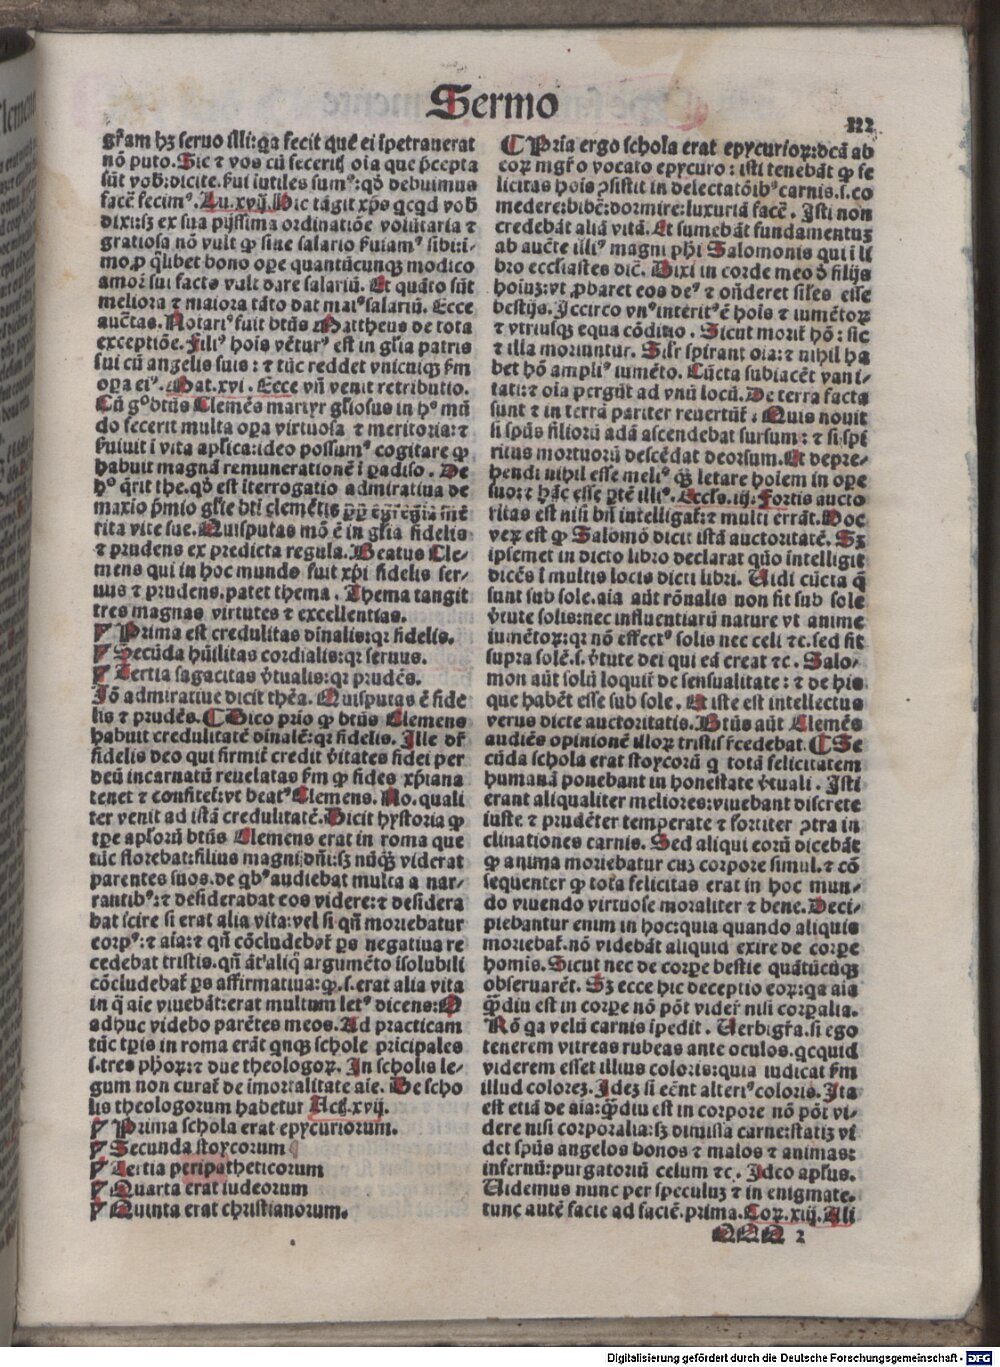 Sermo
122
gr̃am hʒ seruo illi:qa fecit quē ei īpetrauerat
nō puto. Sic ⁊ vos cū feceritꝭ oīa que p̄cepta
sūt vob̄:dicite. s̄ui iutiles sumꝰ:qd̄ debuimus
facē fecimꝰ. Lu. xvij. Hic tāgit xp̄s qcqd vob̄
dixi:sʒ ex sua pijssima ordinatiōe volūtaria ⁊
gratiosa nō vult ꝙ siue salario s̄uiamꝰ sibi:i-
mo ꝓ qͥlibet bono ope quantūcunqʒ modico
amorꝭ sui facto vult dare salariū. Et quāto sūt
meliora ⁊ maiora tāto dat maiꝰ salariū. Ecce
auctas. Notariꝰ fuit btūs Mattheus de tota
exceptiōe. Filiꝰ hoīs vēturꝰ est in gl̄ia patris
sui cū angelis suis: ⁊ tūc reddet vnicuiqʒ s̄m
oꝑa eiꝰ. Mat. xvi. Ecce vn̄ venit retributio.
Cū gͦ btūs Clemēs martyr gl̄iosus in hͦ mū
do fecerit multa oꝑa virtuosa ⁊ meritoria: ⁊
s̄uiuit i vita apl̄ica:ideo possumꝰ cogitare ꝙ
habuit magnā remunerationē i ꝑadiso. De
hͦ q̄rit the. qd̄ est īterrogatio admiratiua de
maxīo p̄mio gl̄ie bt̄i clemētis ꝓpꝓ egregia mē
rita vite sue. Quisputas mō ē in gl̄ia fidelis
⁊ prudens ex predicta regula. Beatus Cle-
mens qui in hoc mundo fuit xp̄i fidelis ser-
uus ⁊ prudens. patet thema. Thema tangit
tres magnas virtutes ⁊ excellentias.
¶ Prima est credulitas diīnalis:qr fidelis.
¶ Secūda hūilitas cordialis:qr seruus.
¶ Tertia sagacitas v̄tualis:qr prudēs.
Iō admiratiue dicit thēa. Quisputas ē fide
lis ⁊ prudēs. ¶ Dico prio ꝙ btūs Clemens
habuit credulitatē diīnalē:qr fidelis. Ille dr̄
fidelis deo qui firmit̄ credit v̄itates fidei per
deū incarnatū reuelatas s̄m ꝙ fides xp̄iana
tenet ⁊ confitet̄:vt beatꝰ Clemens. No. quali
ter venit ad istā credulitatē. Dicit hystoria ꝙ
tꝑe apl̄orū btūs Clemens erat in roma que
tūc florebat:filius magni dn̄i:sʒ nūqʒ viderat
parentes suos. de qbꝰ audiebat multa a nar-
rantibꝰ: ⁊ desiderabat eos videre: ⁊ desidera
bat scire si erat alia vita:vel si qn̄ moriebatur
corpꝰ: ⁊ aīa: ⁊ qn̄ cōcludebat̄ ꝑs negatiua re
cedebat tristis. qn̄ āt̄ aliq̄ argumēto īsolubili
cōcludebat̄ ꝑs affirmatiua:ꝙ. s. erat alia vita
in q̄ aīe viuebāt:erat multum letꝰ dicens:O
adhuc videbo parētes meos. Ad practicam
tūc tꝑis in roma erāt qnqʒ schole pricipales
s. tres phōꝝ: ⁊ due theologoꝝ. In scholis le-
gum non curat̄ de imortalitate aīe. De scho
lis theologorum habetur Act. xvij.
¶ Prima schola erat epycuriorum.
¶ Secunda stoycorum
¶ Tertia peripatheticorum
¶ Quarta erat iudeorum
¶ Quinta erat christianorum.
¶ Pria ergo schola erat epycurioꝝ:dcā ab
eoꝝ mgr̄o vocato epycuro: isti tenebāt ꝙ fe
licitas hoīs ꝯsistit in delectatōibꝰ carnis. s. co
medere:bibē:dormire:luxuriā facē. Isti non
credebāt aliā vitā. Et sumebāt fundamentuʒ
ab auc̄te illiꝰ magni phi Salomonis qui i li
bro ecclesiastes dic̄. Dixi in corde meo d̄ filijs
hoīuʒ:vt ꝓbaret eos deꝰ ⁊ oñderet sīles esse
bestijs. Iccirco vnꝰ interitꝰ ē hoīs ⁊ iumētoꝝ
⁊ vtriusqʒ equa cōditio. Sicut morit̄ hō: sic
⁊ illa moriuntur. Sil̄r spirant oīa: ⁊ nihil ha
bet hō ampliꝰ iumēto. Cūcta subiacēt vani-
tati: ⁊ oīa pergūt ad vnū locū. De terra facta
sunt ⁊ in terrā pariter reuertūt̄. Quis nouit
si spūs filiorū adā ascendebat sursum: ⁊ si spi
ritus mortuorū descēdat deorsum. Et depre-
hendi nihil esse meliꝰ qʒ letare hoīem in oꝑe
suo: ⁊ hāc esse ꝑtē illiꝰ. Eccls. iij. Fortis aucto
ritas est nisi bn̄ intelligat̄: ⁊ multi errāt. Hoc
veꝝ est ꝙ Salomō dicit istā auctoritatē. Sʒ
ipsemet in dicto libro declarat qūo intelligit̄
dicēs ī multis locis dicti libri. Uidi cūcta q̄
sunt sub sole. aīa aūt rōnalis non fit sub sole
v̄tute solis:nec influentiarū nature vt anime
iumētoꝝ:qr nō effectꝰ solis nec celi ⁊c. sed fit
supra solē. s. v̄tute dei qui eā creat ⁊c. Salo-
mon aūt solū loquit̄ de sensualitate: ⁊ de his
que habēt esse sub sole. Et iste est intellectus
verus dicte auctoritatis. Btūs aūt Clemēs
audiēs opinionē illoꝝ tristis r̄cedebat. ¶ Se
cūda schola erat stoycorū q totā felicitatem
humanā ponebant in honestate v̄tuali. Isti
erant aliqualiter meliores:viuebant discrete
iuste ⁊ prudēter temperate ⁊ fortiter ꝯtra in
clinationes carnis. Sed aliqui eorū dicebāt
ꝙ anima moriebatur cuʒ corpore simul. ⁊ cō
sequenter ꝙ tota felicitas erat in hoc mun-
do viuendo virtuose moraliter ⁊ bene. Deci-
piebantur enim in hoc:quia quando aliquis
moriebat̄. nō videbāt aliquid exire de corꝑe
homis. Sicut nec de corꝑe bestie quātūcūqʒ
obseruarēt. Sʒ ecce hic deceptio eoꝝ:qa aīa
q̄diu est in corꝑe nō pōt viderꝭ nisi corꝑalia.
Rō qa velū carnis īpedit. Uerbigr̄a. si ego
tenerem vitreas rubeas ante oculos. qcquid
viderem esset illius coloris:quia iudicat s̄m
illud coloreʒ. Ideʒ si ec̄nt alteriꝰ coloris. Ita
est etiā de aīa:q̄diu est in corpore nō pōt vi-
dere nisi corporalia:sʒ dimissa carne:statiʒ vi
det spūs angelos bonos ⁊ malos ⁊ animas:
infernū:purgatoriū celum ⁊c. Ideo apl̄us.
Uidemus nunc per speculuʒ ⁊ in enigmate.
tunc autē facie ad faciē. prima. Coꝝ. xiij. Ali
QQQ 2
Digitalisierung gefördert durch die Deutsche Forschungsgemeinschaft - DFG